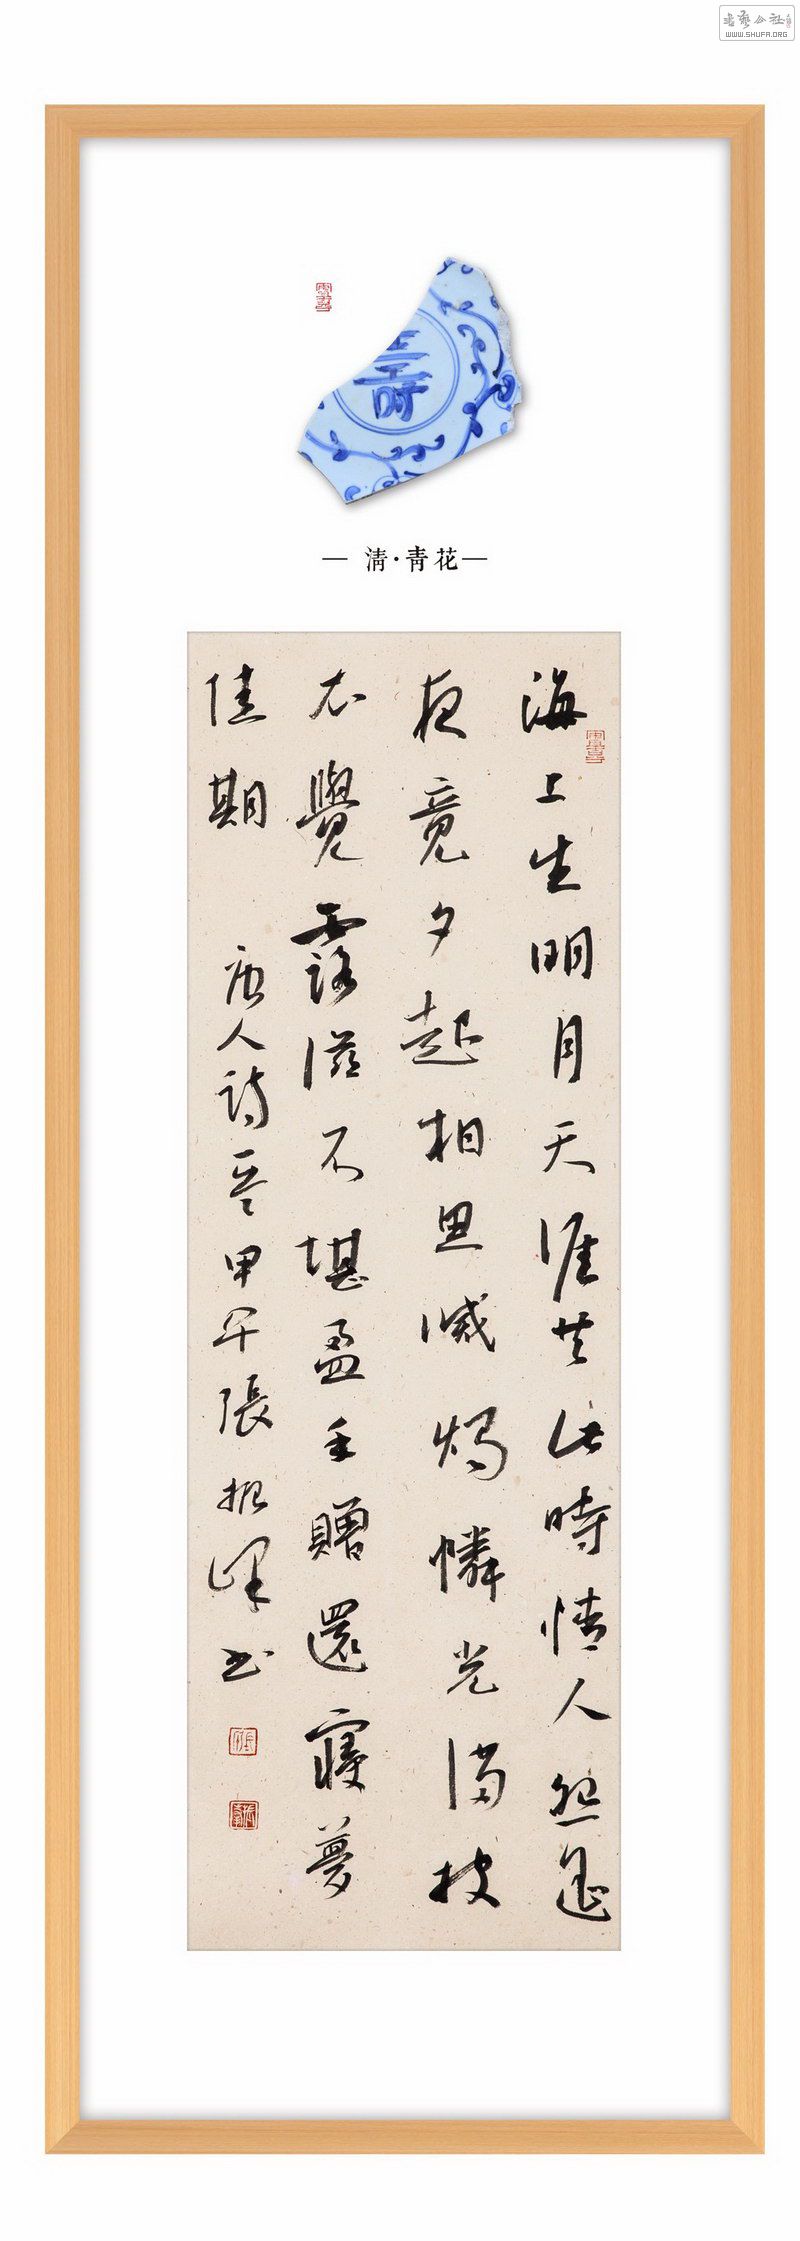 书艺公社
WWW.SHUFA.ORG
壽
— 清·青花 —
海上生明月天涯共此時情人怨遥
夜竟夕起相思滅燭憐光滿披
衣覺露滋不堪盈手贈還寢夢
佳期 唐人詩一首甲午張振书